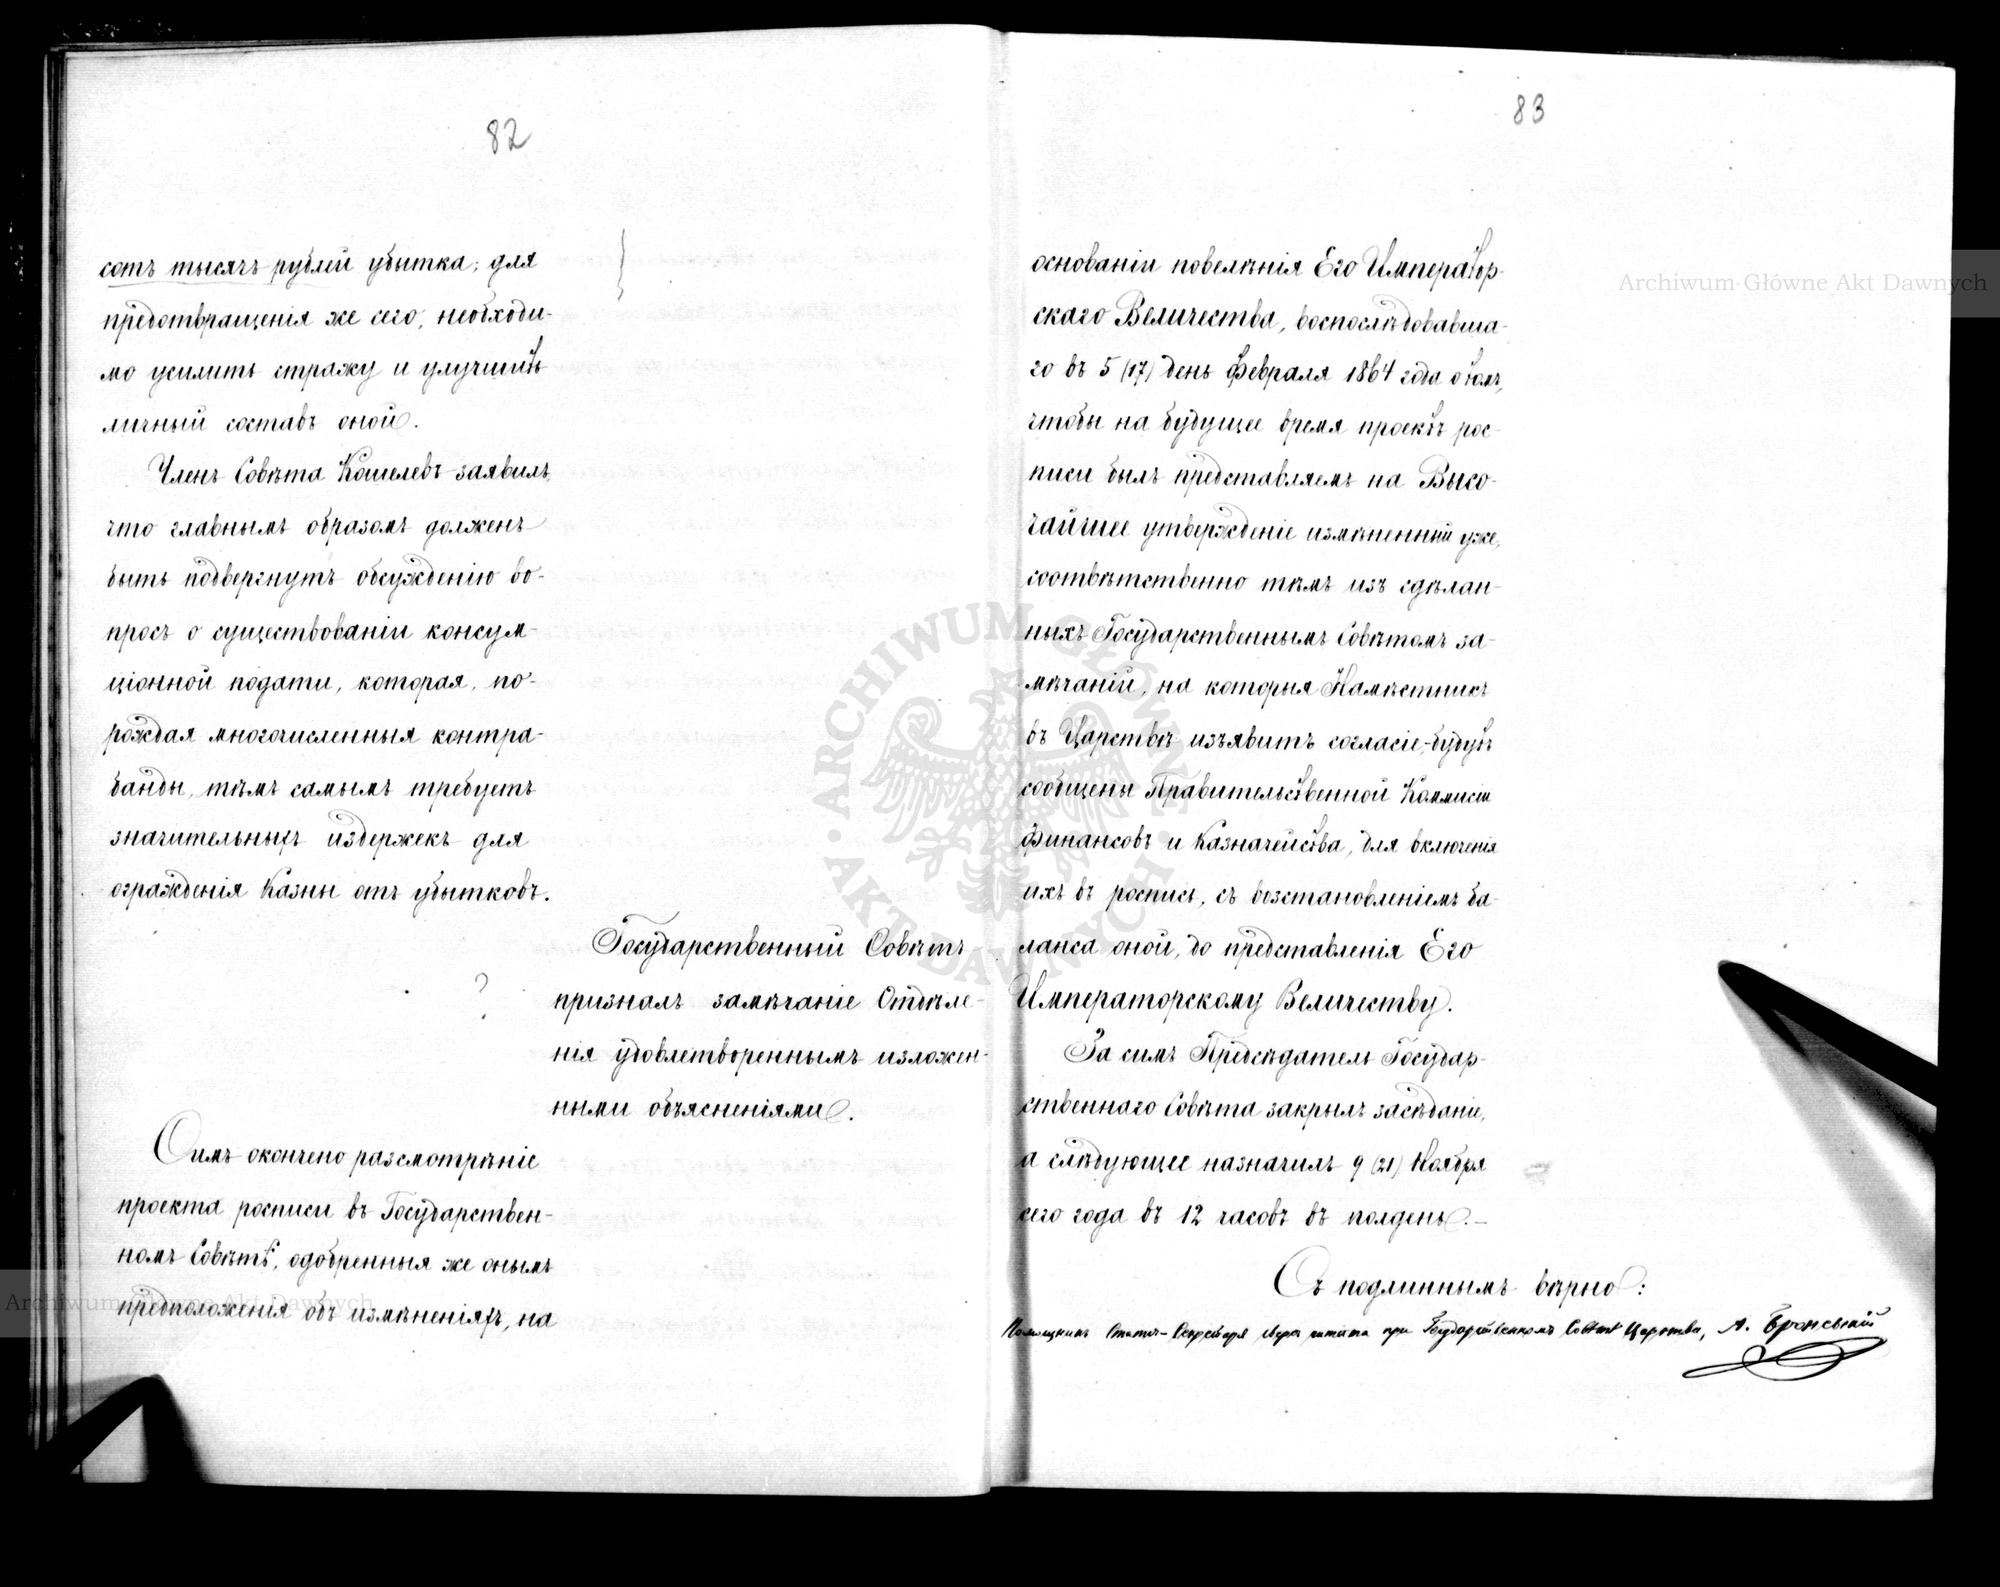 82
сотъ тысячъ рублей убытка; для
предотвращенія же сего, необходи-
мо усилить стражу и улучшить
личный составъ оной.
Членъ Совѣта Кошелевъ заявилъ,
что главнымъ образомъ долженъ
быть подвергнутъ обсужденію во-
просъ о существованіи консум-
ціонной подати, которая, по-
рождая многочисленныя контра-
банды, тѣмъ самымъ требуетъ
значительныхъ издержекъ для
огражденія Казны отъ убытковъ.
Государственный Совѣтъ
?
призналъ замѣчаніе Отдѣле-
нія удовлетвореннымъ изложен-
ными объясненіями.
Симъ окончено разсмотрѣніе
проекта росписи въ Государствен-
номъ Совѣтѣ, одобренныя же онымъ
предположенія объ измѣненіяхъ, на
83
основаніи повелѣнія Его Император-
скаго Величества, воспослѣдовавша-
го въ 5 (17) день Февраля 1864 года о томъ,
чтобы на будущее время проектъ рос-
писи былъ представляемъ на Высо-
чайшее утвержденіе измѣненный уже,
соотвѣтственно тѣмъ изъ сдѣлан-
ныхъ Государственнымъ Совѣтомъ за-
мѣчаній, на которыя Намѣстникъ
въ Царствѣ изъявитъ согласіе, будутъ
сообщены Правительственной Коммисіи
Финансовъ и Казначейства, для включенія
ихъ въ роспись, съ возстановленіемъ ба-
ланса оной, до представленія Его
Императорскому Величеству.
За симъ Предсѣдатель Государ-
ственнаго Совѣта закрылъ засѣданіе,
а слѣдующее назначилъ 9 (21) Ноября
сего года въ 12 часовъ въ полдень.—
Съ подлиннымъ вѣрно:
Помощникъ Статсъ-Секретаря при Государственномъ Совѣтѣ Царства, А.
Archiwum Główne Akt Dawnych
Archiwum Główne Akt Dawnych
ARCHIWUM GŁÓWNE AKT DAWNYCH